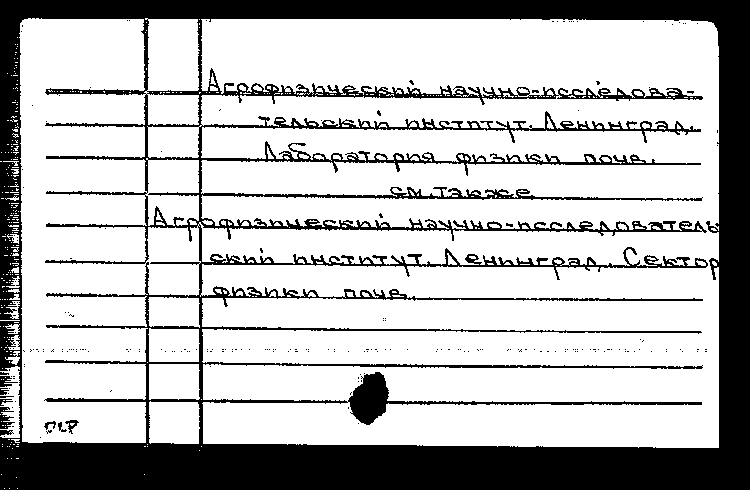 Агрофизический научно-исследова-
тельский институт. Ленинград.
Лаборатория физики почв.
см. также
Агрофизический научно-исследователь
ский институт. Ленинград. Сектор
физики почв.